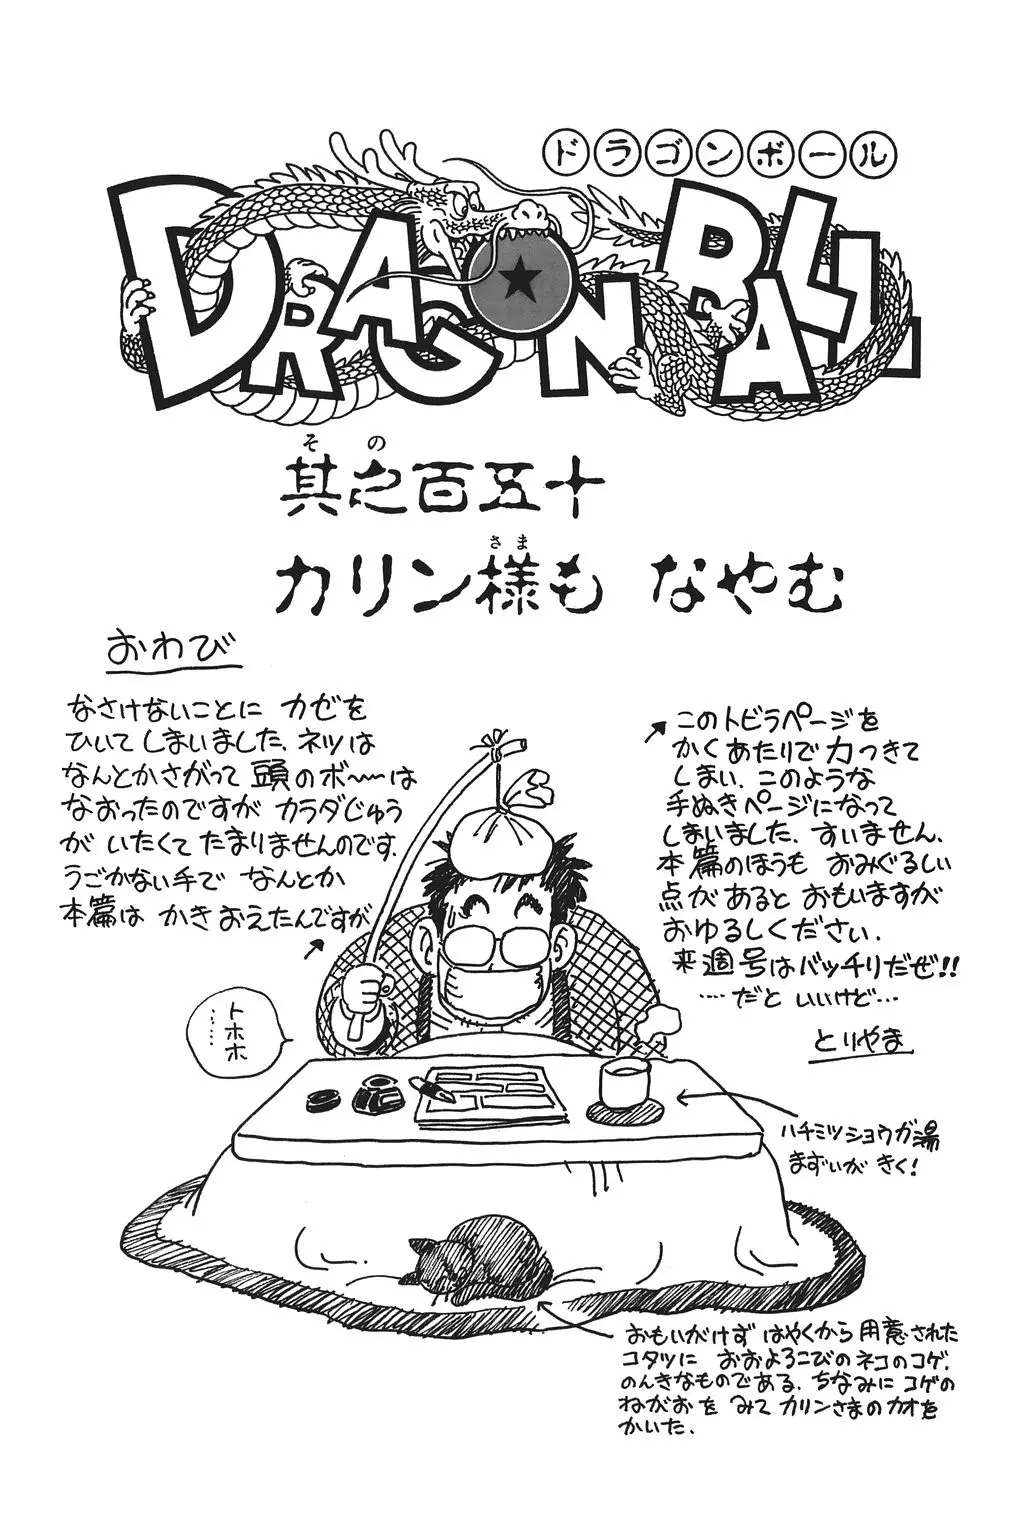 ドラゴンボール
DRAGON BALL
其之百五十
そ の
カリン様も なやむ
さま
おわび
なさけないことに カゼを
ひいて しまいました、ネツは
なんとかさがって 頭のボ〜〜は
なおったのですが カラダじゅう
が いたくて たまりませんのです。
うごかない手で なんとか
本篇は かきおえたんですが
このトビラページを
かくあたりで 力つきて
しまい、このような
手ぬきページになって
しまいました。すいません。
本篇のほうも おみぐるしい
点があるとおもいますが
おゆるしください。
来週号はバッチリだぜ!!
……だと いいけど…
とりやま
トホホ……
ハチミツショウガ湯
まずいが きく!
おもいがけず はやくから 用意された
コタツに おおよろこびの ネコのコゲ。
のんきなものである。ちなみに コゲの
ねがおを みて カリンさまのカオを
かいた。